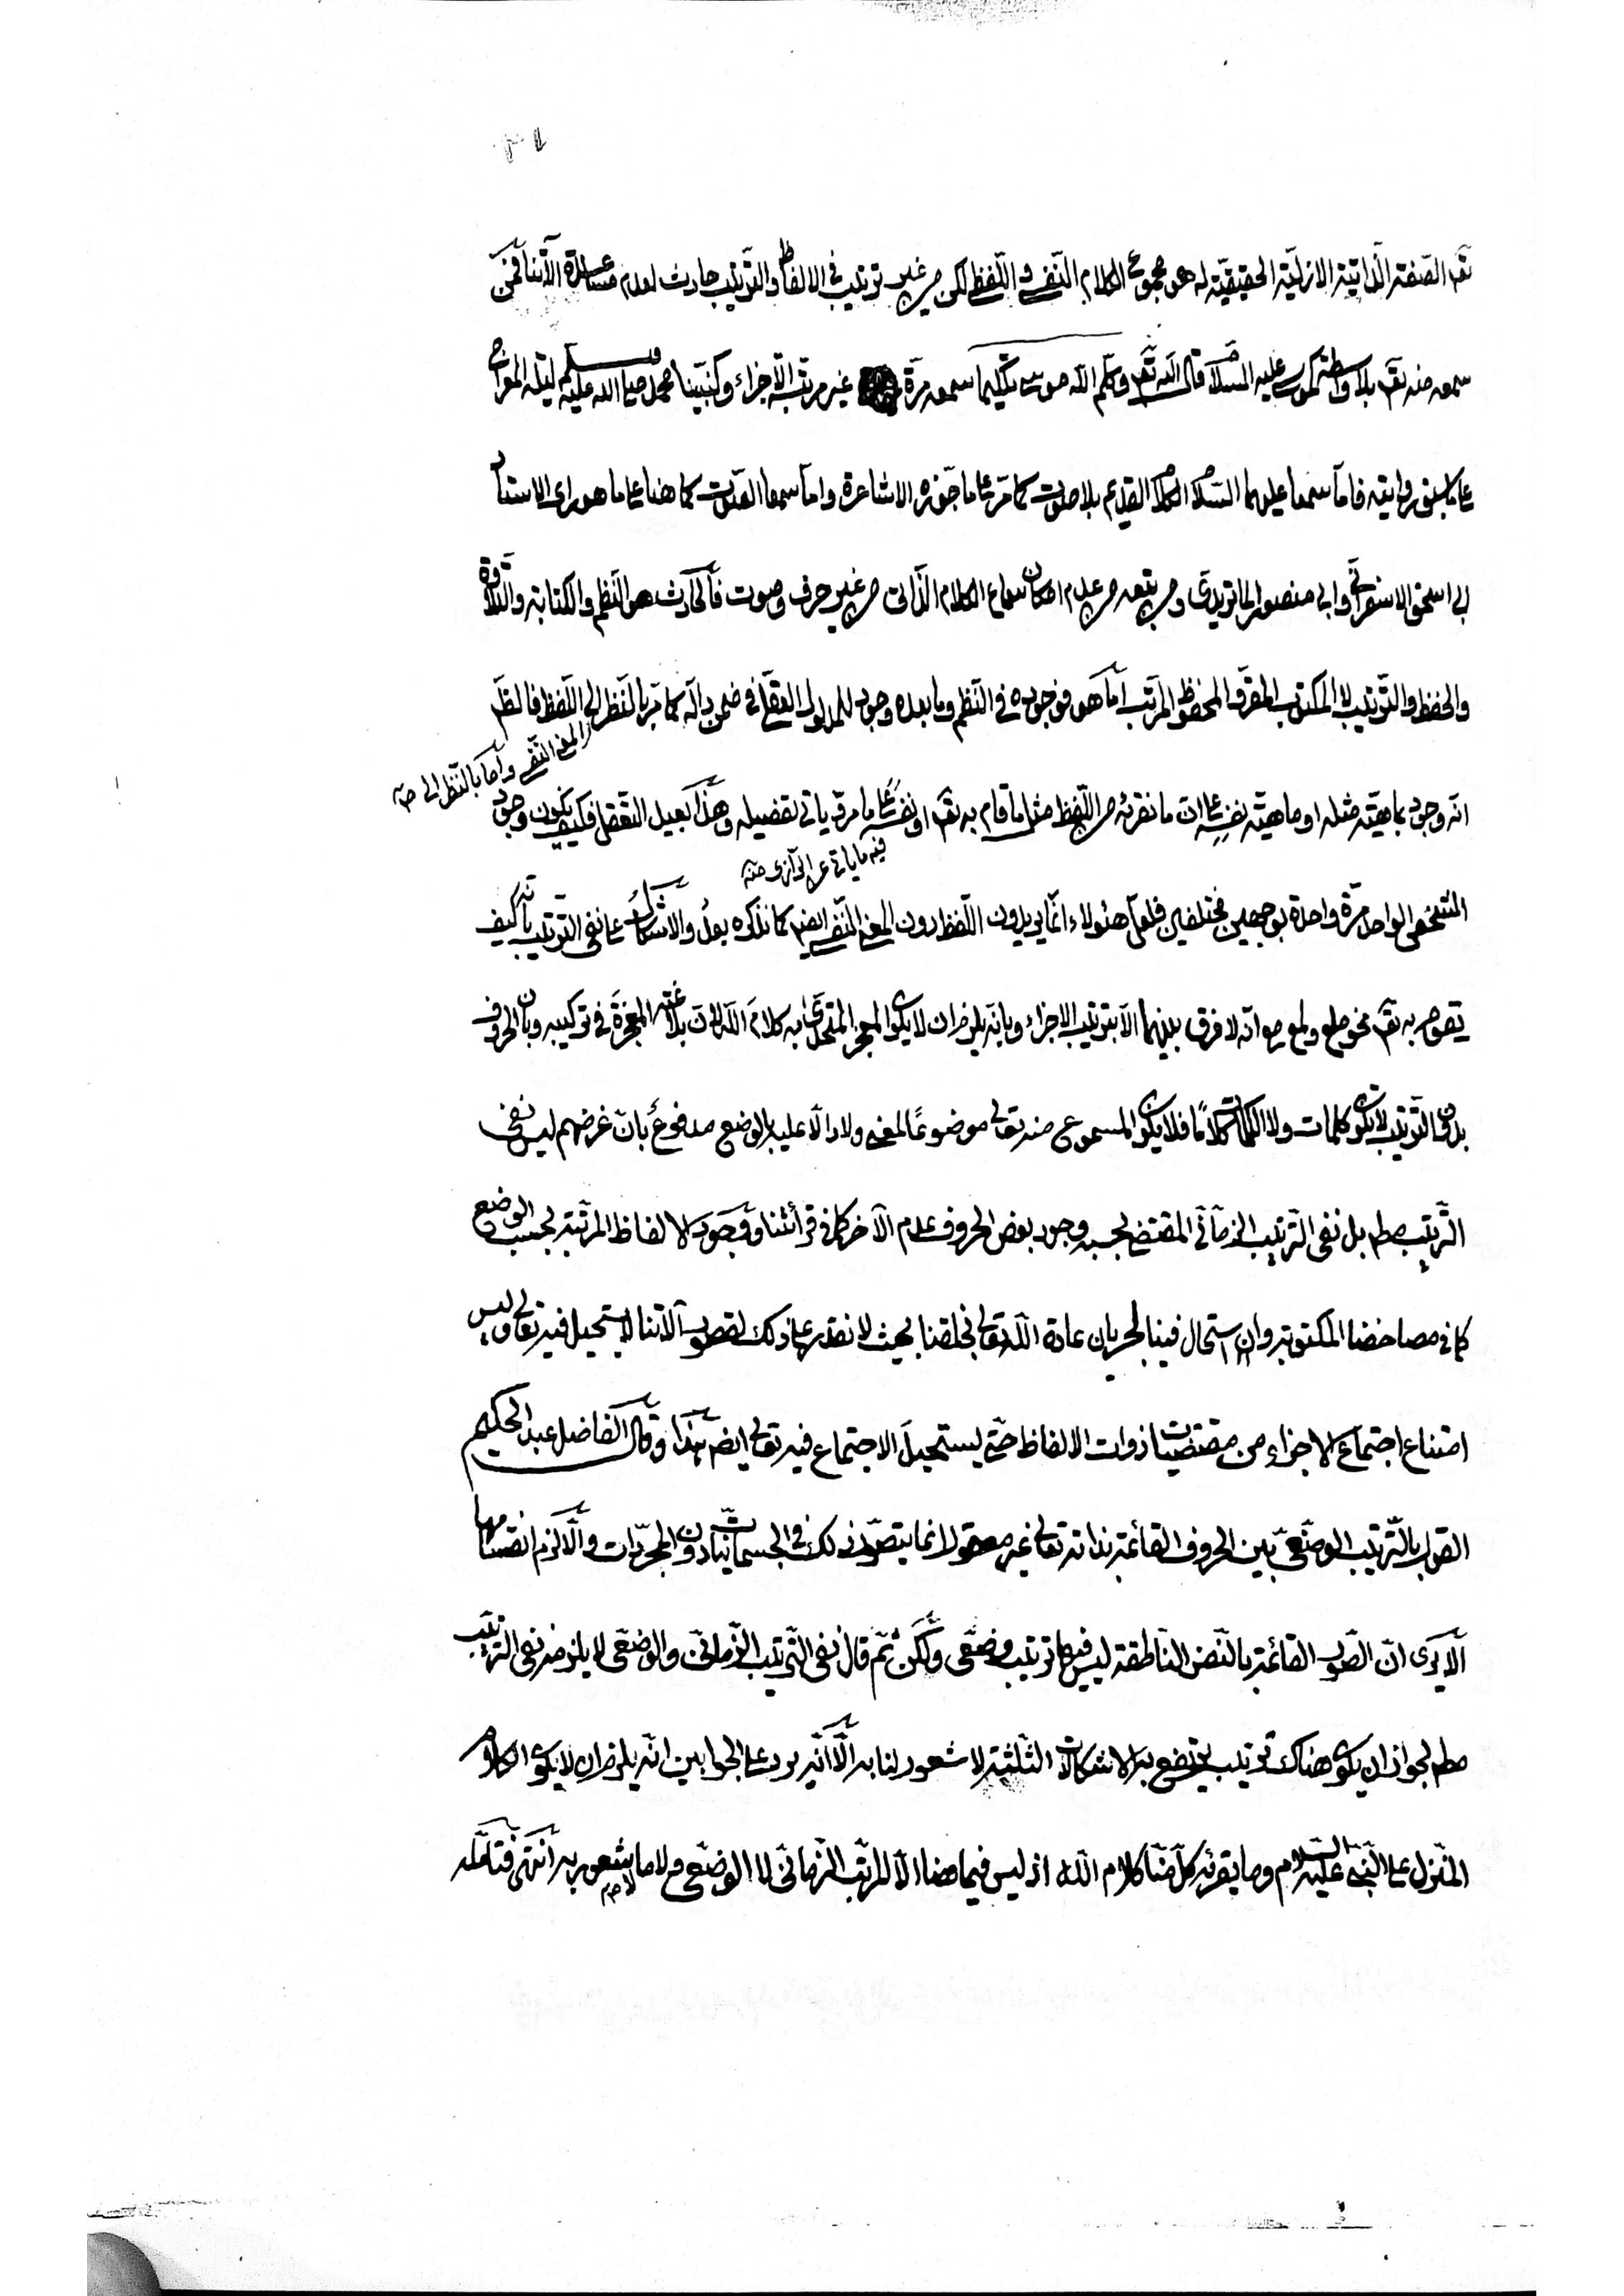 تع الصفة الذاتية الازلية الحقيقية له هو مجموع الكلام النفسى واللفظى لكن من غير ترتيب فى الالفاظ والترتيب حادث لعدم مساعدة الآتنا فمن
سمعه منه تع بلا واسطة كموسى عليه السلام قال الله تع وكلم الله موسى تكليما سمعه مرة غير مرتب الاجزاء وكنبينا محمد صلى الله عليه وسلم ليلة المعراج
على ما سبق روايته فاما سمعا عليهما السلام الكلام القديم بلا صوت كما مر على ما جوزه الاشاعرة واما سمعا الصوت كما هنا على ما هو رأى الاستاد
ابى اسحق الاسفرائنى وابى منصور الماتريدى ومن تبعه من عدم امكان سماع الكلام الذاتى من غير حرف وصوت فالحادث هو النظم والكتابة والتلاوة
والحفظ والترتيب لا المكتوب المقرو المحفوظ المرتب اما هو فوجوده فى النظم وما بعده وجود للمدلول العقلى فى ضمن داله كما مر بالنظر الى اللفظ فالنظم
المعنى النفسى واما بالنظر الى صح
انه وجود بماهية مثله او ماهية نفسه على ان ما نقرئه من اللفظ مثل ما قام به تع او نفسه على ما مر ويأتى تفصيله وهذا بعيد التعقل فكيف يكون وجود
فيه ما يأتى عن الرازى منه
الشخص الواحد مرة واحدة بوجهين مختلفين فلعل هئولاء انما يريدون اللفظ دون المعنى النفسى ايضا كما نذكره بعد والاشكال على نفى الترتيب بانه كيف
يقوم به تع نحو ملع ولمع مع انه لا فرق بينهما الا بترتيب الاجزاء وبانه يلزم ان لا يكون المعجز المتحدى به كلام الله لان بلاغته المعجزة فى تركيبه وبان الحروف
بدون الترتيب لا تكون كلمات ولا الكلمات كلاما فلا يكون المسموع منه تعالى موضوعا لمعنى ولا دالا عليه بالوضع مدفوع بان غرضهم ليس نفى
الترتيب مطم بل نفى الترتيب الزمانى المقتضى بحسبه وجود بعض الحروف عدم الآخر كما فى قرأئتنا ووجود الالفاظ المرتبة بحسب الوضع
كما فى مصاحفنا المكتوبة وان استحال فينا لجريان عادة الله تعالى بخلقنا بحيث لا نقدر على ذلك لقصور آلاتنا لا يستحيل فيه تعالى وليس
امتناع اجتماع الاجزاء من مقتضيات ذوات الالفاظ حتى يستحيل الاجتماع فيه تعالى ايضا هذا وقال الفاضل عبد الحكيم
القول بالترتيب الوضعى بين الحروف القائمة بذاته تعالى غير معقول انما يتصور ذلك فى الجسمانيات دون المجردات والا لزم انقسامها
الا يرى ان الصور القائمة بالنفس الناطقة ليس فيها ترتيب وضعى ولكن ثم قال نفى الترتيب الزمانى والوضعى لا يلزم نفى الترتيب
مطم لجواز ان يكون هناك ترتيب يخضع به الاشكالات الثلثة لا شعور لنا به الا انه يرد على الجوابين انه يلزم ان لا يكون الكلام
المنزل على النبى عليه السلام وما يقرئه كل منا كلام الله اذ ليس فيما هنا الا المرتب الزمانى لا الوضعى ولا ما لا يشعور به انتهى فتأمله